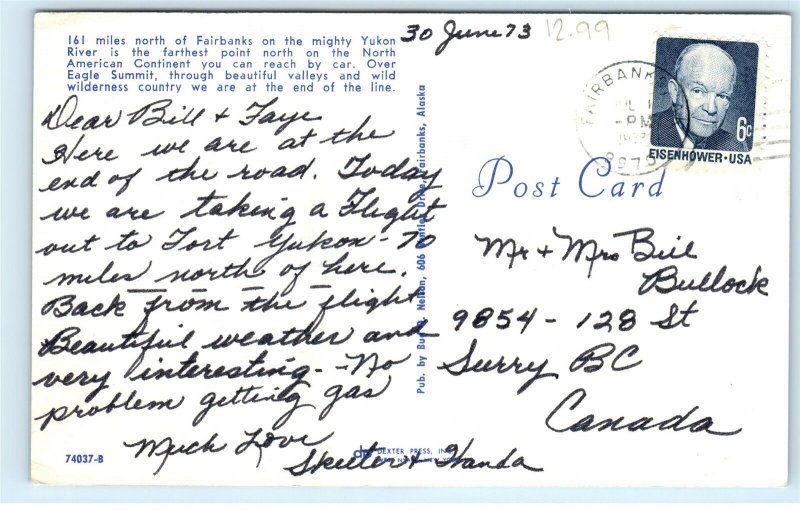 161 miles north of Fairbanks on the mighty Yukon
River is the farthest point north on the North
American Continent you can reach by car. Over
Eagle Summit, through beautiful valleys and wild
wilderness country we are at the end of the line.
30 June 73
12.99
Dear Bill + Faye
Here we are at the
end of the road. Today
we are taking a Flight
out to Fort Yukon - 70
miles north of here.
Back from the flight
Beautiful weather and
very interesting. - No
problem getting gas
Much Love
Skeeter + Wanda
74037-B
DEXTER PRESS, INC.
Pub. by Nelson, 606 Drive, Fairbanks, Alaska
FAIRBANKS
PM
6c
EISENHOWER·USA
Post Card
Mr + Mrs Bill
Bullock
9854 - 128 St
Surry BC
Canada